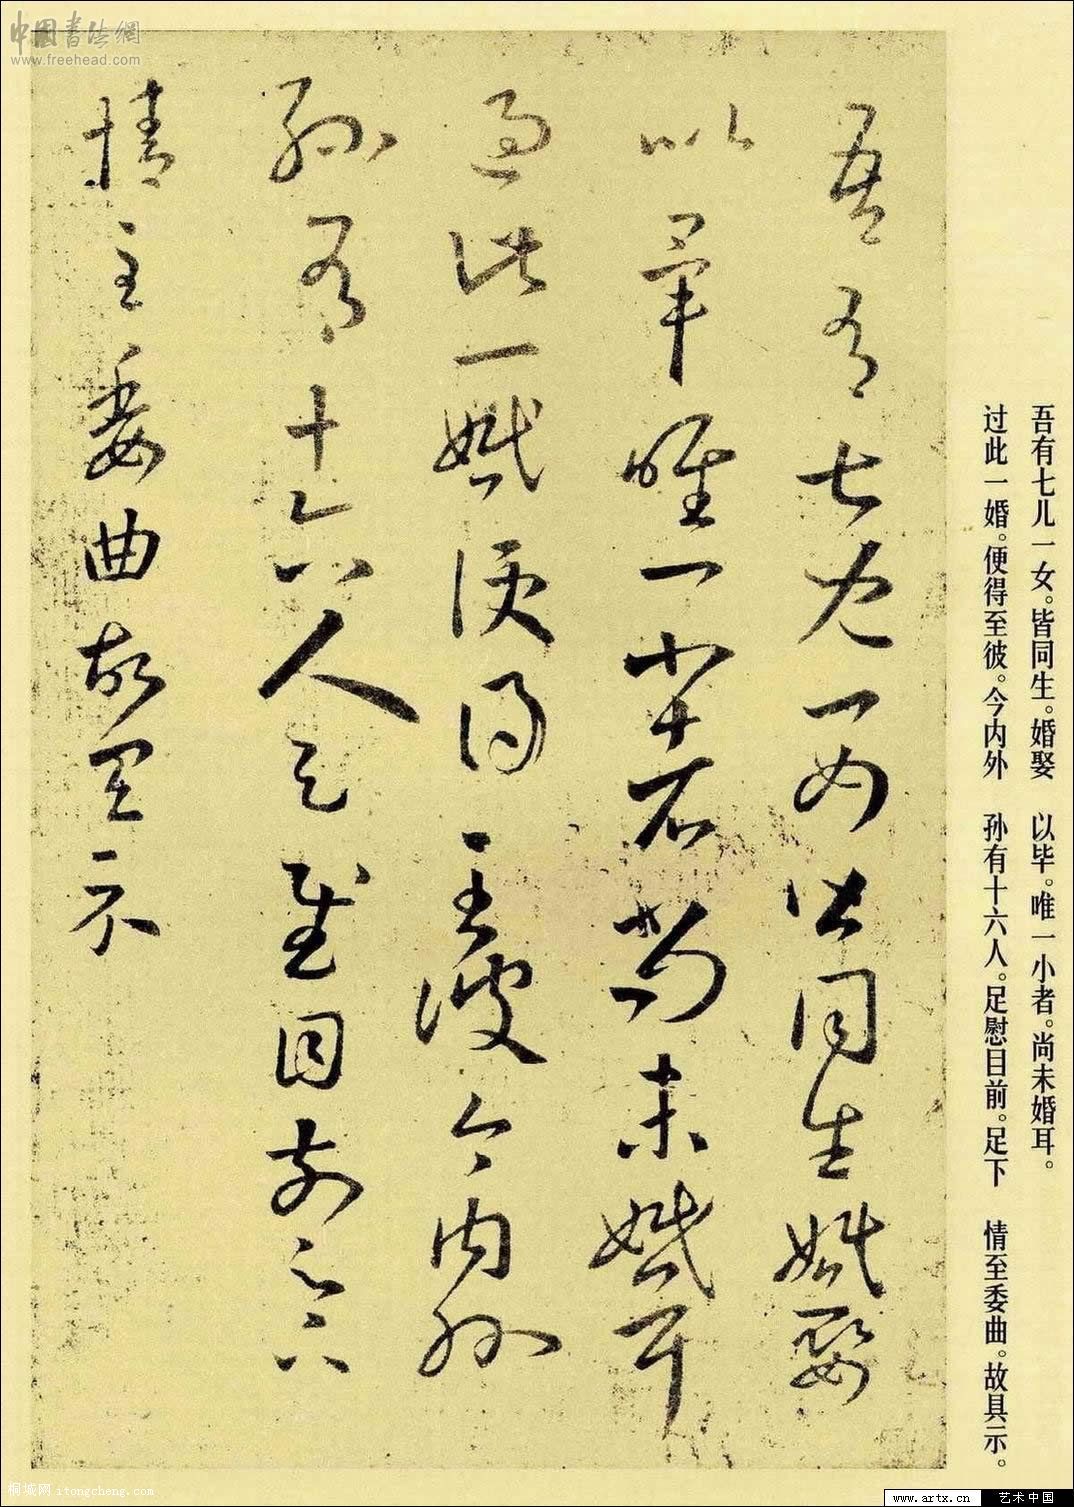 吾有七儿一女皆同生婚娶
以毕唯一小者尚未婚耳
过此一婚便得至彼今内外
孙有十六人足慰目前足下
情至委曲故具示
吾有七儿一女。皆同生。婚娶　以毕。唯一小者。尚未婚耳。
过此一婚。便得至彼。今内外　孙有十六人。足慰目前。足下　情至委曲。故具示。
中国书法網
www.freehead.com
桐城网 itongcheng.com
www.artx.cn 艺术中国